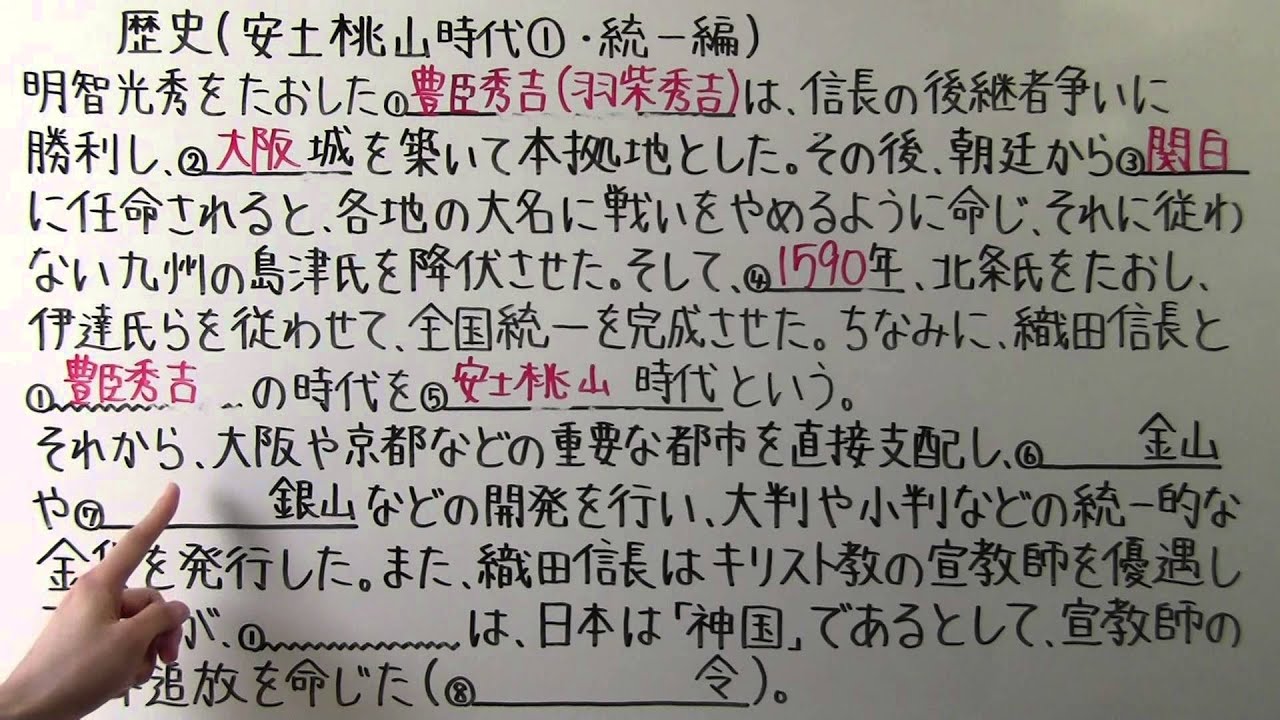 歴史(安土桃山時代①・統一編)
明智光秀をたおした①豊臣秀吉(羽柴秀吉)は、信長の後継者争いに
勝利し、②大阪城を築いて本拠地とした。その後、朝廷から③関白
に任命されると、各地の大名に戦いをやめるように命じ、それに従わ
ない九州の島津氏を降伏させた。そして、④1590年、北条氏をたおし、
伊達氏らを従わせて、全国統一を完成させた。ちなみに、織田信長と
①豊臣秀吉の時代を⑤安土桃山時代という。
それから、大阪や京都などの重要な都市を直接支配し、⑥金山
や⑦銀山などの開発を行い、大判や小判などの統一的な
金を発行した。また、織田信長はキリスト教の宣教師を優遇し
が、①は、日本は「神国」であるとして、宣教師の
追放を命じた(⑧令)。